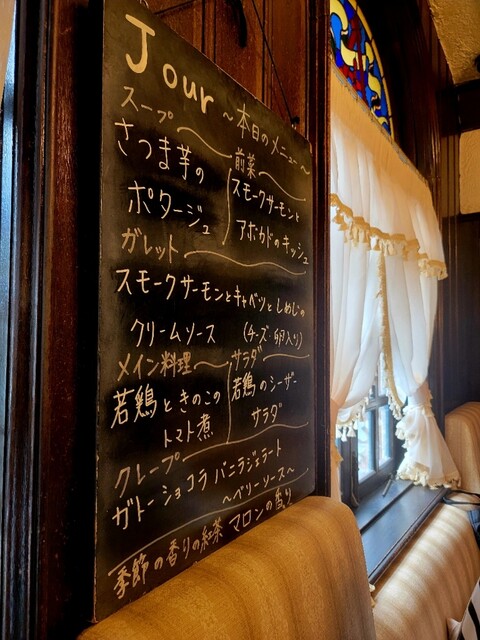 Jour ～本日のメニュー～
スープ
さつま芋の
ポタージュ
前菜
スモークサーモンと
アボカドのキッシュ
ガレット
スモークサーモンとキャベツとしめじの
クリームソース (チーズ・卵入り)
メイン料理
若鶏ときのこの
トマト煮
サラダ
若鶏のシーザー
サラダ
クレープ
ガトーショコラ バニラジェラート
～ベリーソース～
季節の香りの紅茶 マロンの香り